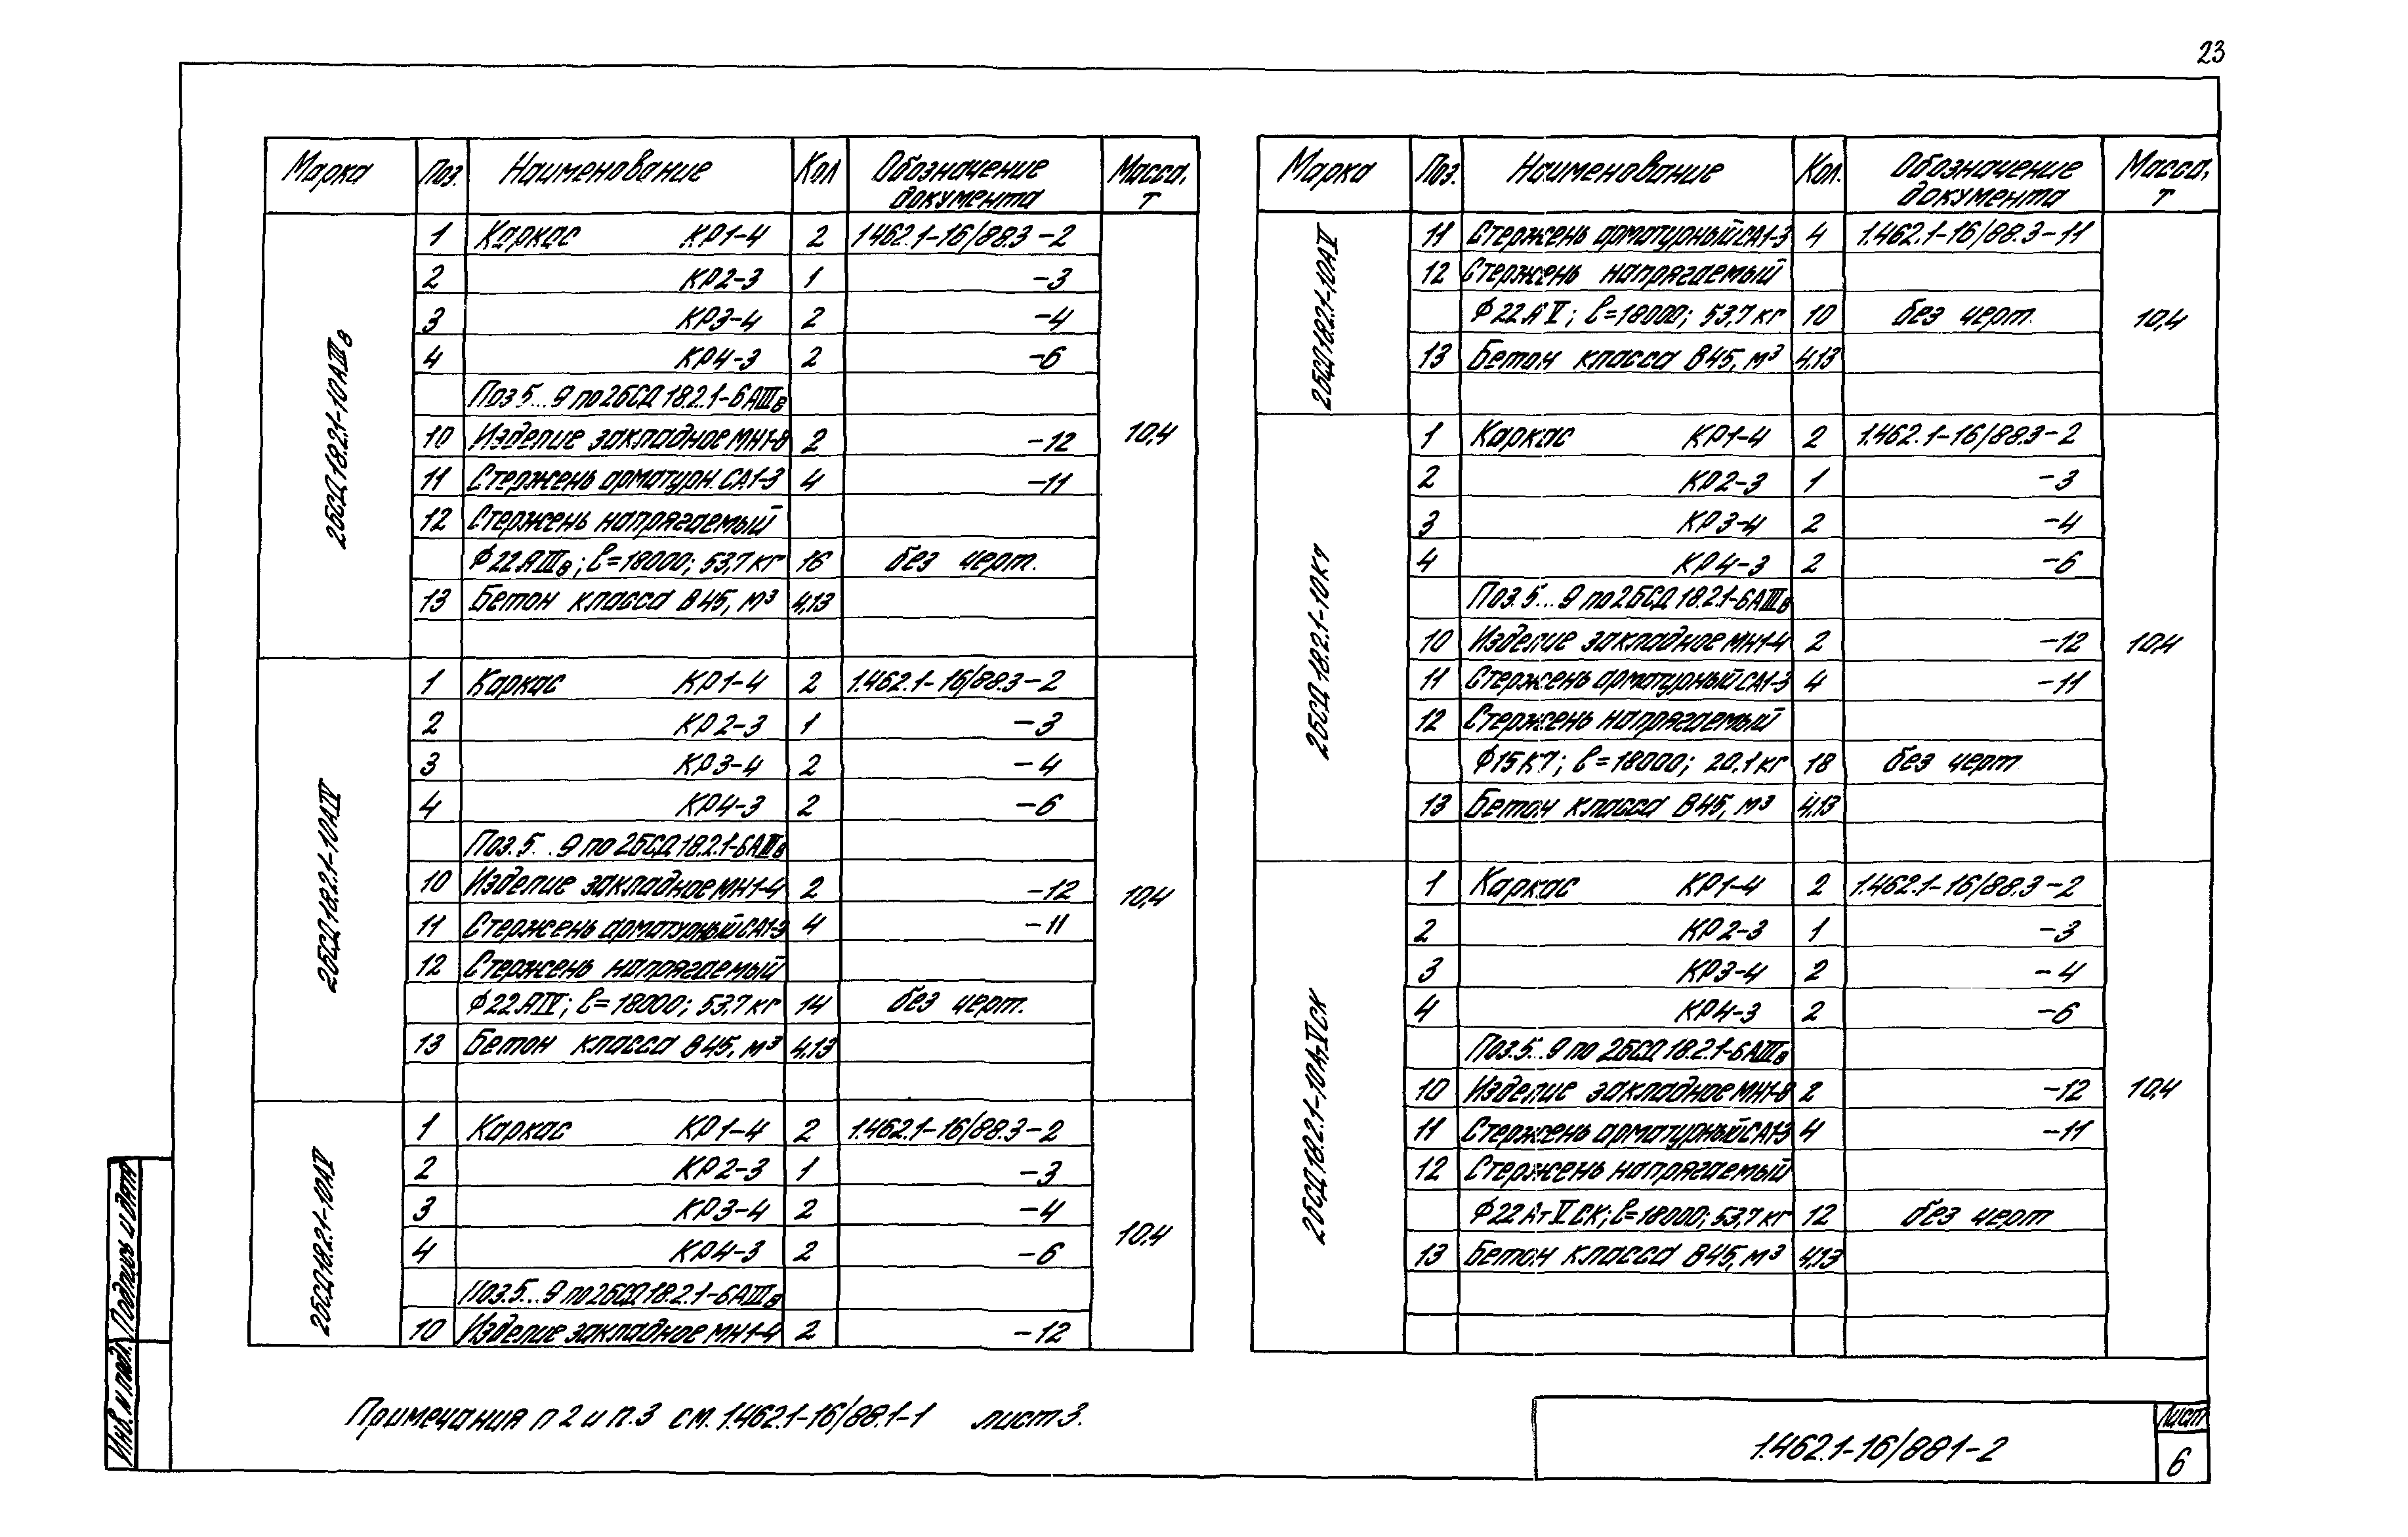 23
Марка Поз. Наименование Кол Обозначение документа Масса, т
2БСД18.2.1-10АIIIв
1 Каркас КР1-4 2 1.462.1-16/88.3-2
2 КР2-3 1 -3
3 КР3-4 2 -4
4 КР4-3 2 -6
Поз 5...9 по 2БСД 18.2.1-6АIIIв
10 Изделие закладное МН1-8 2 -12
10,4
11 Стержень арматурн. СА1-3 4 -11
12 Стержень напрягаемый
Ф22АIIIв; ℓ=18000; 53,7кг 16 без черт.
13 Бетон класса В45, м³ 4,13
2БСД18.2.1-10АIV
1 Каркас КР1-4 2 1.462.1-16/88.3-2
2 КР2-3 1 -3
3 КР3-4 2 -4
4 КР4-3 2 -6
Поз.5...9 по 2БСД18.2.1-6АIIIв
10 Изделие закладное МН1-4 2 -12
10,4
11 Стержень арматурный СА1-3 4 -11
12 Стержень напрягаемый
Ф22АIV; ℓ=18000; 53,7кг 14 без черт.
13 Бетон класса В45, м³ 4,13
2БСД18.2.1-10АV
1 Каркас КР1-4 2 1.462.1-16/88.3-2
2 КР2-3 1 -3
3 КР3-4 2 -4
10,4
4 КР4-3 2 -6
Поз.5...9 по 2БСД18.2.1-6АIIIв
10 Изделие закладное МН1-4 2 -12
Марка Поз. Наименование Кол. Обозначение документа Масса, т
2БСД18.2.1-10АV
11 Стержень арматурный СА1-3 4 1.462.1-16/88.3-11
12 Стержень напрягаемый
Ф22АV; ℓ=18000; 53,7кг 10 без черт. 10,4
13 Бетон класса В45, м³ 4,13
2БСД18.2.1-10К7
1 Каркас КР1-4 2 1.462.1-16/88.3-2
2 КР2-3 1 -3
3 КР3-4 2 -4
4 КР4-3 2 -6
Поз.5...9 по 2БСД 18.2.1-6АIIIв
10 Изделие закладное МН1-4 2 -12 10,4
11 Стержень арматурный СА1-3 4 -11
12 Стержень напрягаемый
Ф15К7; ℓ=18000; 20,1кг 18 без черт
13 Бетон класса В45, м³ 4,13
2БСД18.2.1-10АтVСК
1 Каркас КР1-4 2 1.462.1-16/88.3-2
2 КР2-3 1 -3
3 КР3-4 2 -4
4 КР4-3 2 -6
Поз.5...9 по 2БСД 18.2.1-6АIIIв
10 Изделие закладное МН1-8 2 -12 10,4
11 Стержень арматурный СА1-3 4 -11
12 Стержень напрягаемый
Ф22АтVСК; ℓ=18000; 53,7кг 12 без черт
13 Бетон класса В45, м³ 4,13
Примечания п 2 и п.3 см. 1.462.1-16/88.1-1 лист 3.
1.462.1-16/88 1-2
Лист
6
Инв. N подл. Подпись и дата